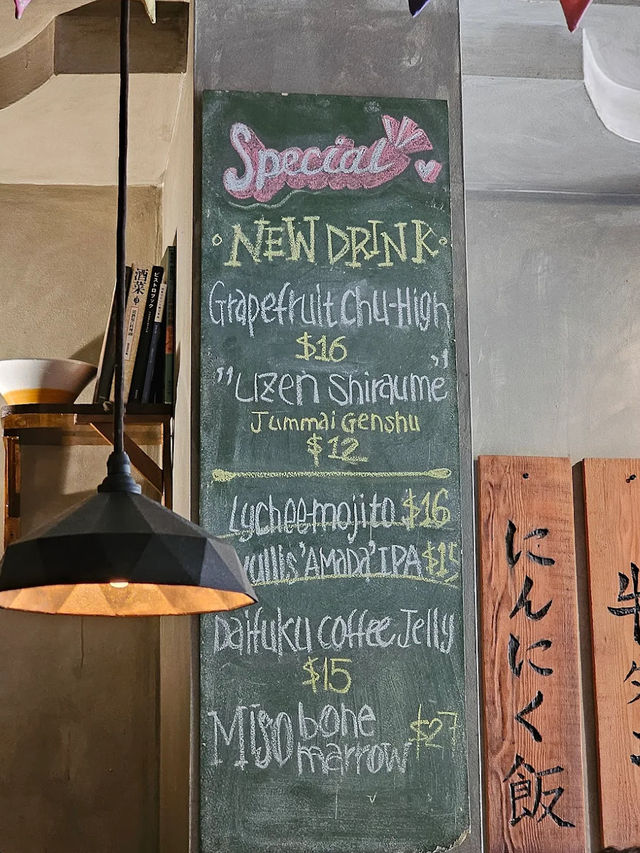 Special
NEW DRINK
Grapefruit Chu-High
$16
"Uzen Shiraume"
Jummai Genshu
$12
Lychee mojito $16
'AMADA' IPA $15
Daifuku coffee Jelly
$15
Miso bone
marrow $27
酒菜
ビストロブック
にんにく飯
牛タン